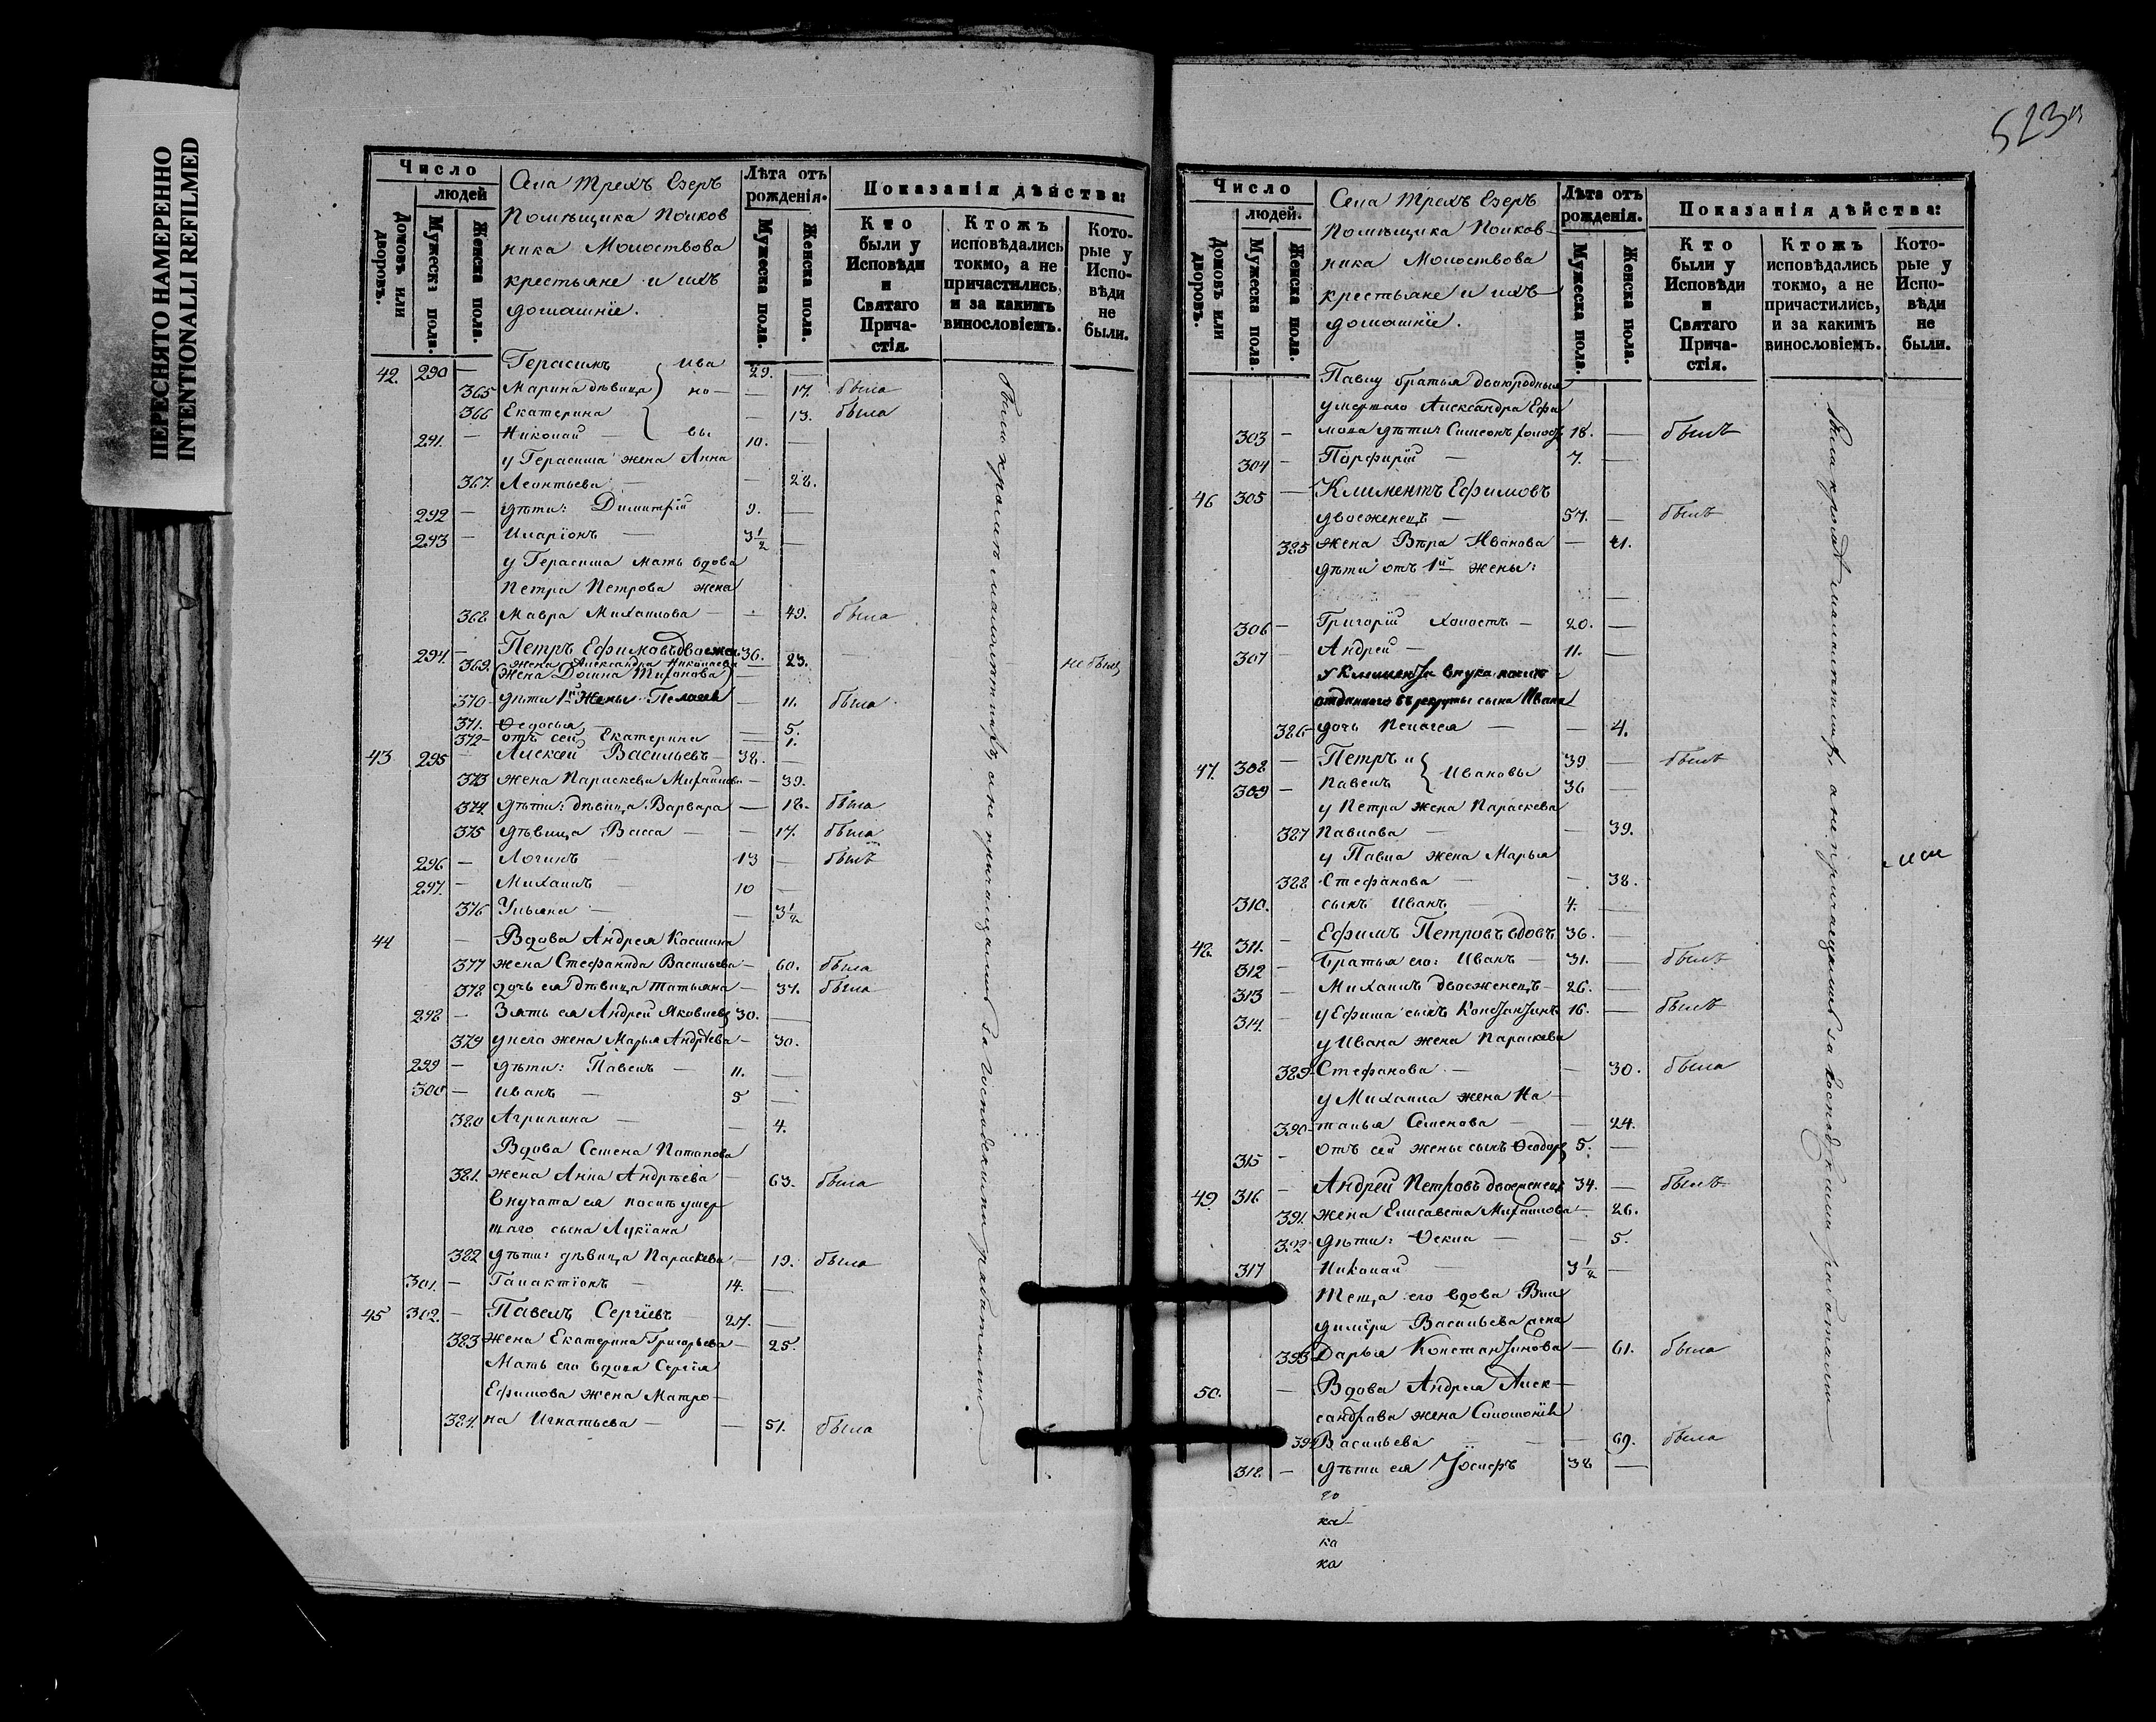 ПЕРЕСНЯТО НАМЕРЕННО
INTENTIONALLI REFILMED
Число
людей
Домовъ или дворовъ.
Мужеска пола.
Женска пола.
Села Трехъ Езеръ
Помѣщика Полков
ника Молоствова
крестьяне и ихъ
домашніе.
Лѣта отъ рожденія.
Мужеска пола.
Женска пола.
Показанія дѣйства:
Кто были у Исповѣди и Святаго Причастія.
Ктожъ исповѣдались токмо, а не причастились, и за какимъ винословіемъ.
Которые у Исповѣди не были.
42. 290 — Герасимъ } Ива 29. —
365 Марина дѣвица } но — — 17. была
366 Екатерина — 13. была
291. — Николай — } вы 10. —
у Герасима жена Анна
367. Леонтьева — — 28.
292 — дѣти: Димитрій 9. —
293 — Иларіонъ — 3 1/2 —
у Герасима мать вдова
Петра Петрова жена
368 Мавра Михаилова — — 49. была
294. — Петръ Ефимовъ двоежен 36. —
369. жена Александра Николаева 23. не были
(жена Домна Тиханова) —
370 дѣти 1й жены Пелагея — 11. была
371. Ѳедосья — — 5.
372 — отъ сей Екатерина — 1.
43 295 — Алексѣй Васильевъ — 38. —
373 жена Параскева Михаилова — 39.
374. дѣти: дѣвица Варвара — 18. была
375 дѣвица Васса — — 17. была
296 — Логинъ — 13 — былъ
297. — Михаилъ — 10 —
376 Ульяна — — 3 1/2
44 — Вдова Андрея Космина
377 жена Стефанида Васильева — 60. была
378 дочь ея дѣвица Татьяна — 37. была
298 — Зять ея Андрей Яковлевъ 30. —
379 у него жена Марья Андрѣева — 30.
299 — дѣти: Павелъ — 11. —
300 — Иванъ — 5 —
380 Агрипина — — 4.
Вдова Семена Потапова
381. жена Анна Андрѣева — 63. была
Внучата ея послѣ умер
шаго сына Лукіана
382 дѣти: дѣвица Параскева — 19. была
301. — Галактіонъ — 14. —
45 302. — Павелъ Сергѣевъ — 27. —
383 жена Екатерина Григорьева — 25.
Мать его вдова Сергія
Ефимова жена Матро —
384. на Игнатьева — — 51. была
были кромѣ малолѣтнихъ, а не причащались за господскими работами.
523
Число
людей.
Домовъ или дворовъ.
Мужеска пола
Женска пола.
Села Трехъ Езеръ
Помѣщика Полков —
ника Молоствова
крестьяне и ихъ
домашніе.
Лѣта отъ рожденія.
Мужеска пола.
Женска пола.
Показанія дѣйства:
Кто были у Исповѣди и Святаго Причастія.
Ктожъ исповѣдались токмо, а не причастились, и за какимъ винословіемъ.
Которые у Исповѣди не были.
Павлу братья двоюродныя
умершаго Александра Ефи
303 — мова дѣти Симеонъ холостъ 18. — былъ
304 — Порфирій — 7. —
46 305 — Климентъ Ефимовъ
двоеженецъ — 57. — былъ
385 жена Вѣра Иванова — 41.
дѣти отъ 1й жены:
306 — Григорій холостъ — 20. —
307 — Андрей — 11. —
У Климента внука послѣ
отданнаго въ рекруты сына Ивана
386 — дочь Пелагея — — 4.
47. 308 — Петръ и } Ивановы 39 — былъ
309 — Павелъ 36 —
у Петра жена Параскева
387 Павлова — — 39.
у Павла жена Марья
388 Стефанова — — 38.
310. сынъ Иванъ — 4. —
48. 311. — Ефимъ Петровъ вдовъ 36. —
312 — Братья его: Иванъ — 31. — былъ
313 — Михаилъ двоеженецъ — 26. —
314. — у Ефима сынъ Константинъ 16. — былъ
у Ивана жена Параскева
389 Стефанова — — 30. была
у Михаила жена На —
390 — талья Семенова — — 24.
315 — отъ сей жены сынъ Ѳеодоръ 5. —
49. 316 — Андрей Петровъ двоеженецъ 34. — былъ
391. жена Елисавета Михаилова — 26.
392 дѣти: Ѳекла — — 5.
317 Николай — 3 1/2 —
Теща его вдова Вла
димира Васильева жена
393 Дарья Константинова — 61. была
50. — Вдова Андрея Алек —
сандрова жена Соломонія
394 Васильева — — 69. была
318. — дѣти ея Іосифъ 38 —
го
ка
ка
ка
были кромѣ малолѣтнихъ, а не причащались за господскими работами